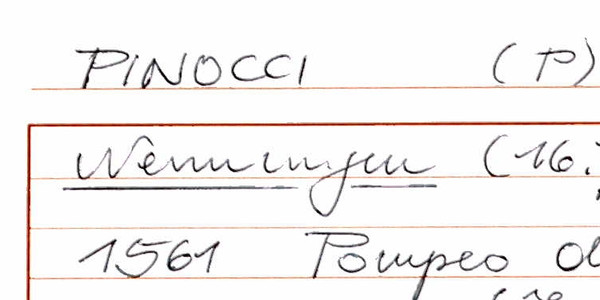 PINOCCI (P)
Wenningen (16.
1561 Pompeo